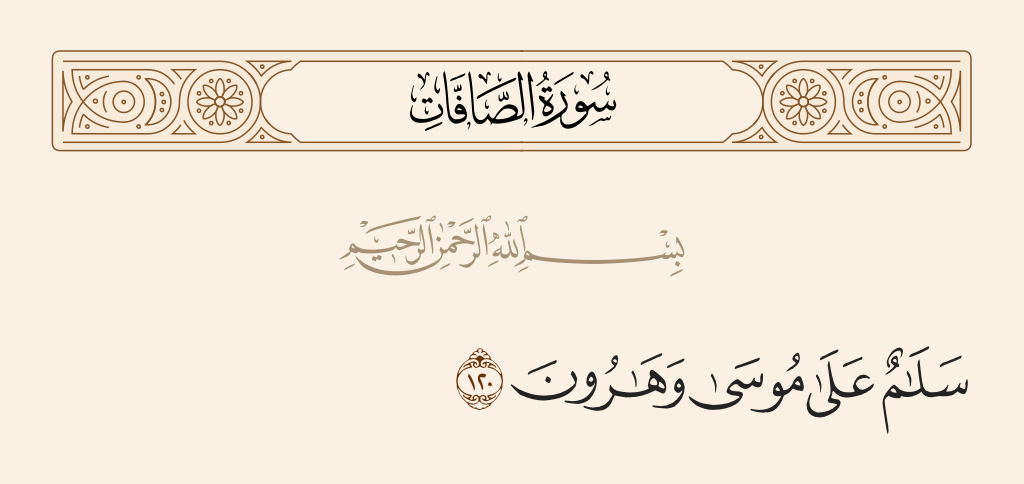 سُورَةُ الصَّافَّاتِ
بِسْمِ ٱللَّهِ ٱلرَّحْمَٰنِ ٱلرَّحِيمِ
سَلَٰمٌ عَلَىٰ مُوسَىٰ وَهَٰرُونَ ١٢٠